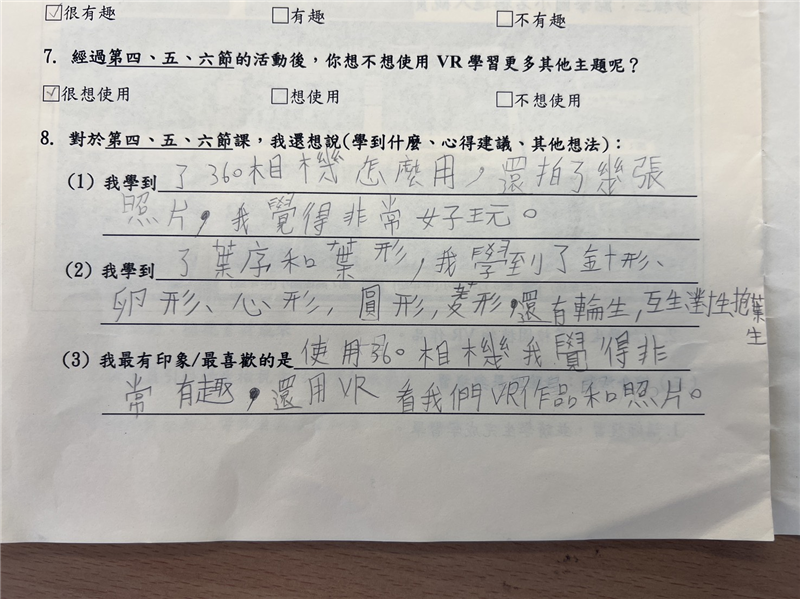 ☑很有趣 □有趣 □不有趣
7. 經過第四、五、六節的活動後，你想不想使用 VR 學習更多其他主題呢？
☑很想使用 □想使用 □不想使用
8. 對於第四、五、六節課，我還想說(學到什麼、心得建議、其他想法)：
(1) 我學到了360相機怎麼用，還拍了幾張
照片，我覺得非常好玩。
(2) 我學到了葉序和葉形，我學到了針形、
卵形、心形，圓形，菱形，還有輪生，互生對生抱葉
生
(3) 我最有印象/最喜歡的是使用360相機我覺得非
常有趣，還用VR看我們VR作品和照片。